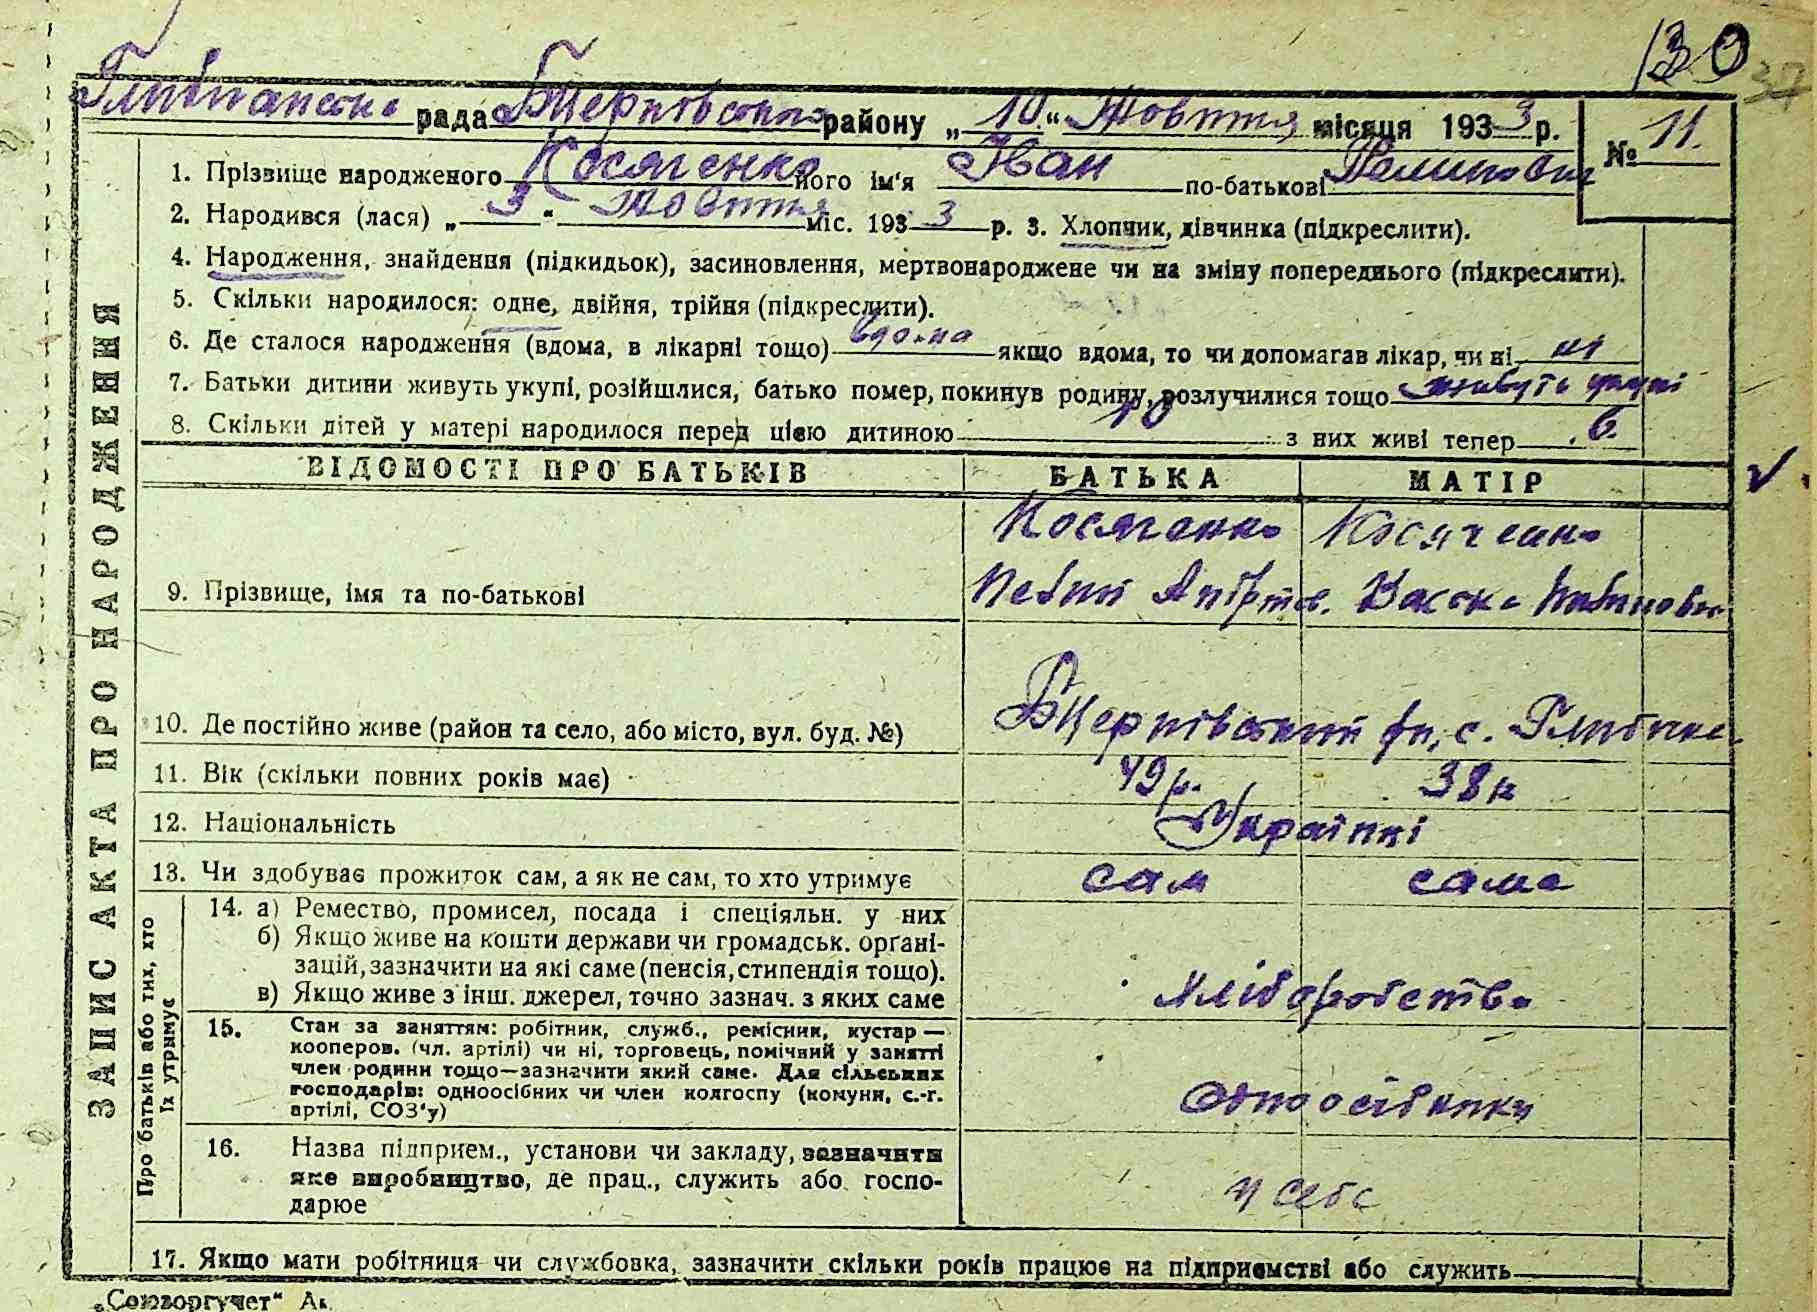 130
37
Глибичанська рада БЦерківського району „10“ Жовтня місяця 1933 р.
№ 11.
1. Прізвище народженого Косяченко його ім'я Іван по-батькові
2. Народився (лася) „3“ Жовтня міс. 1933 р. 3. Хлопчик, дівчинка (підкреслити).
4. Народження, знайдення (підкидьок), засиновлення, мертвонароджене чи на зміну попереднього (підкреслити).
5. Скільки народилося: одне, двійня, трійня (підкреслити).
6. Де сталося народження (вдома, в лікарні тощо) вдома якщо вдома, то чи допомагав лікар, чи ні ні
7. Батьки дитини живуть укупі, розійшлися, батько помер, покинув родину, розлучилися тощо живуть укупі
8. Скільки дітей у матері народилося перед цією дитиною 10 з них живі тепер 6
ВІДОМОСТІ ПРО БАТЬКІВ БАТЬКА МАТІР
Косяченко Косяченко
9. Прізвище, імя та по-батькові
10. Де постійно живе (район та село, або місто, вул. буд. №) БЦерківський рн, с. Глибичка
11. Вік (скільки повних років має) 49р. 38р
12. Національність Українці
13. Чи здобуває прожиток сам, а як не сам, то хто утримує сам сама
14. а) Ремество, промисел, посада і спеціяльн. у них
б) Якщо живе на кошти держави чи громадськ. органі-
зацій, зазначити на які саме (пенсія, стипендія тощо).
в) Якщо живе з інш. джерел, точно зазнач. з яких саме
хліборобство
15. Стан за заняттям: робітник, служб., ремісник, кустар —
кооперов. (чл. артілі) чи ні, торговець, помічний у занятті
член родини тощо—зазначити який саме. Для сільських
господарів: одноосібних чи член колгоспу (комуни, с.-г.
артілі, СОЗ'у)
одноосібники
16. Назва підприєм., установи чи закладу, зазначити
яке виробництво, де прац., служить або госпо-
дарює
у себе
17. Якщо мати робітниця чи службовка, зазначити скільки років працює на підприємстві або служить
ЗАПИС АКТА ПРО НАРОДЖЕННЯ
Про батьків або тих, хто
їх утримує
„Союзоргучет“